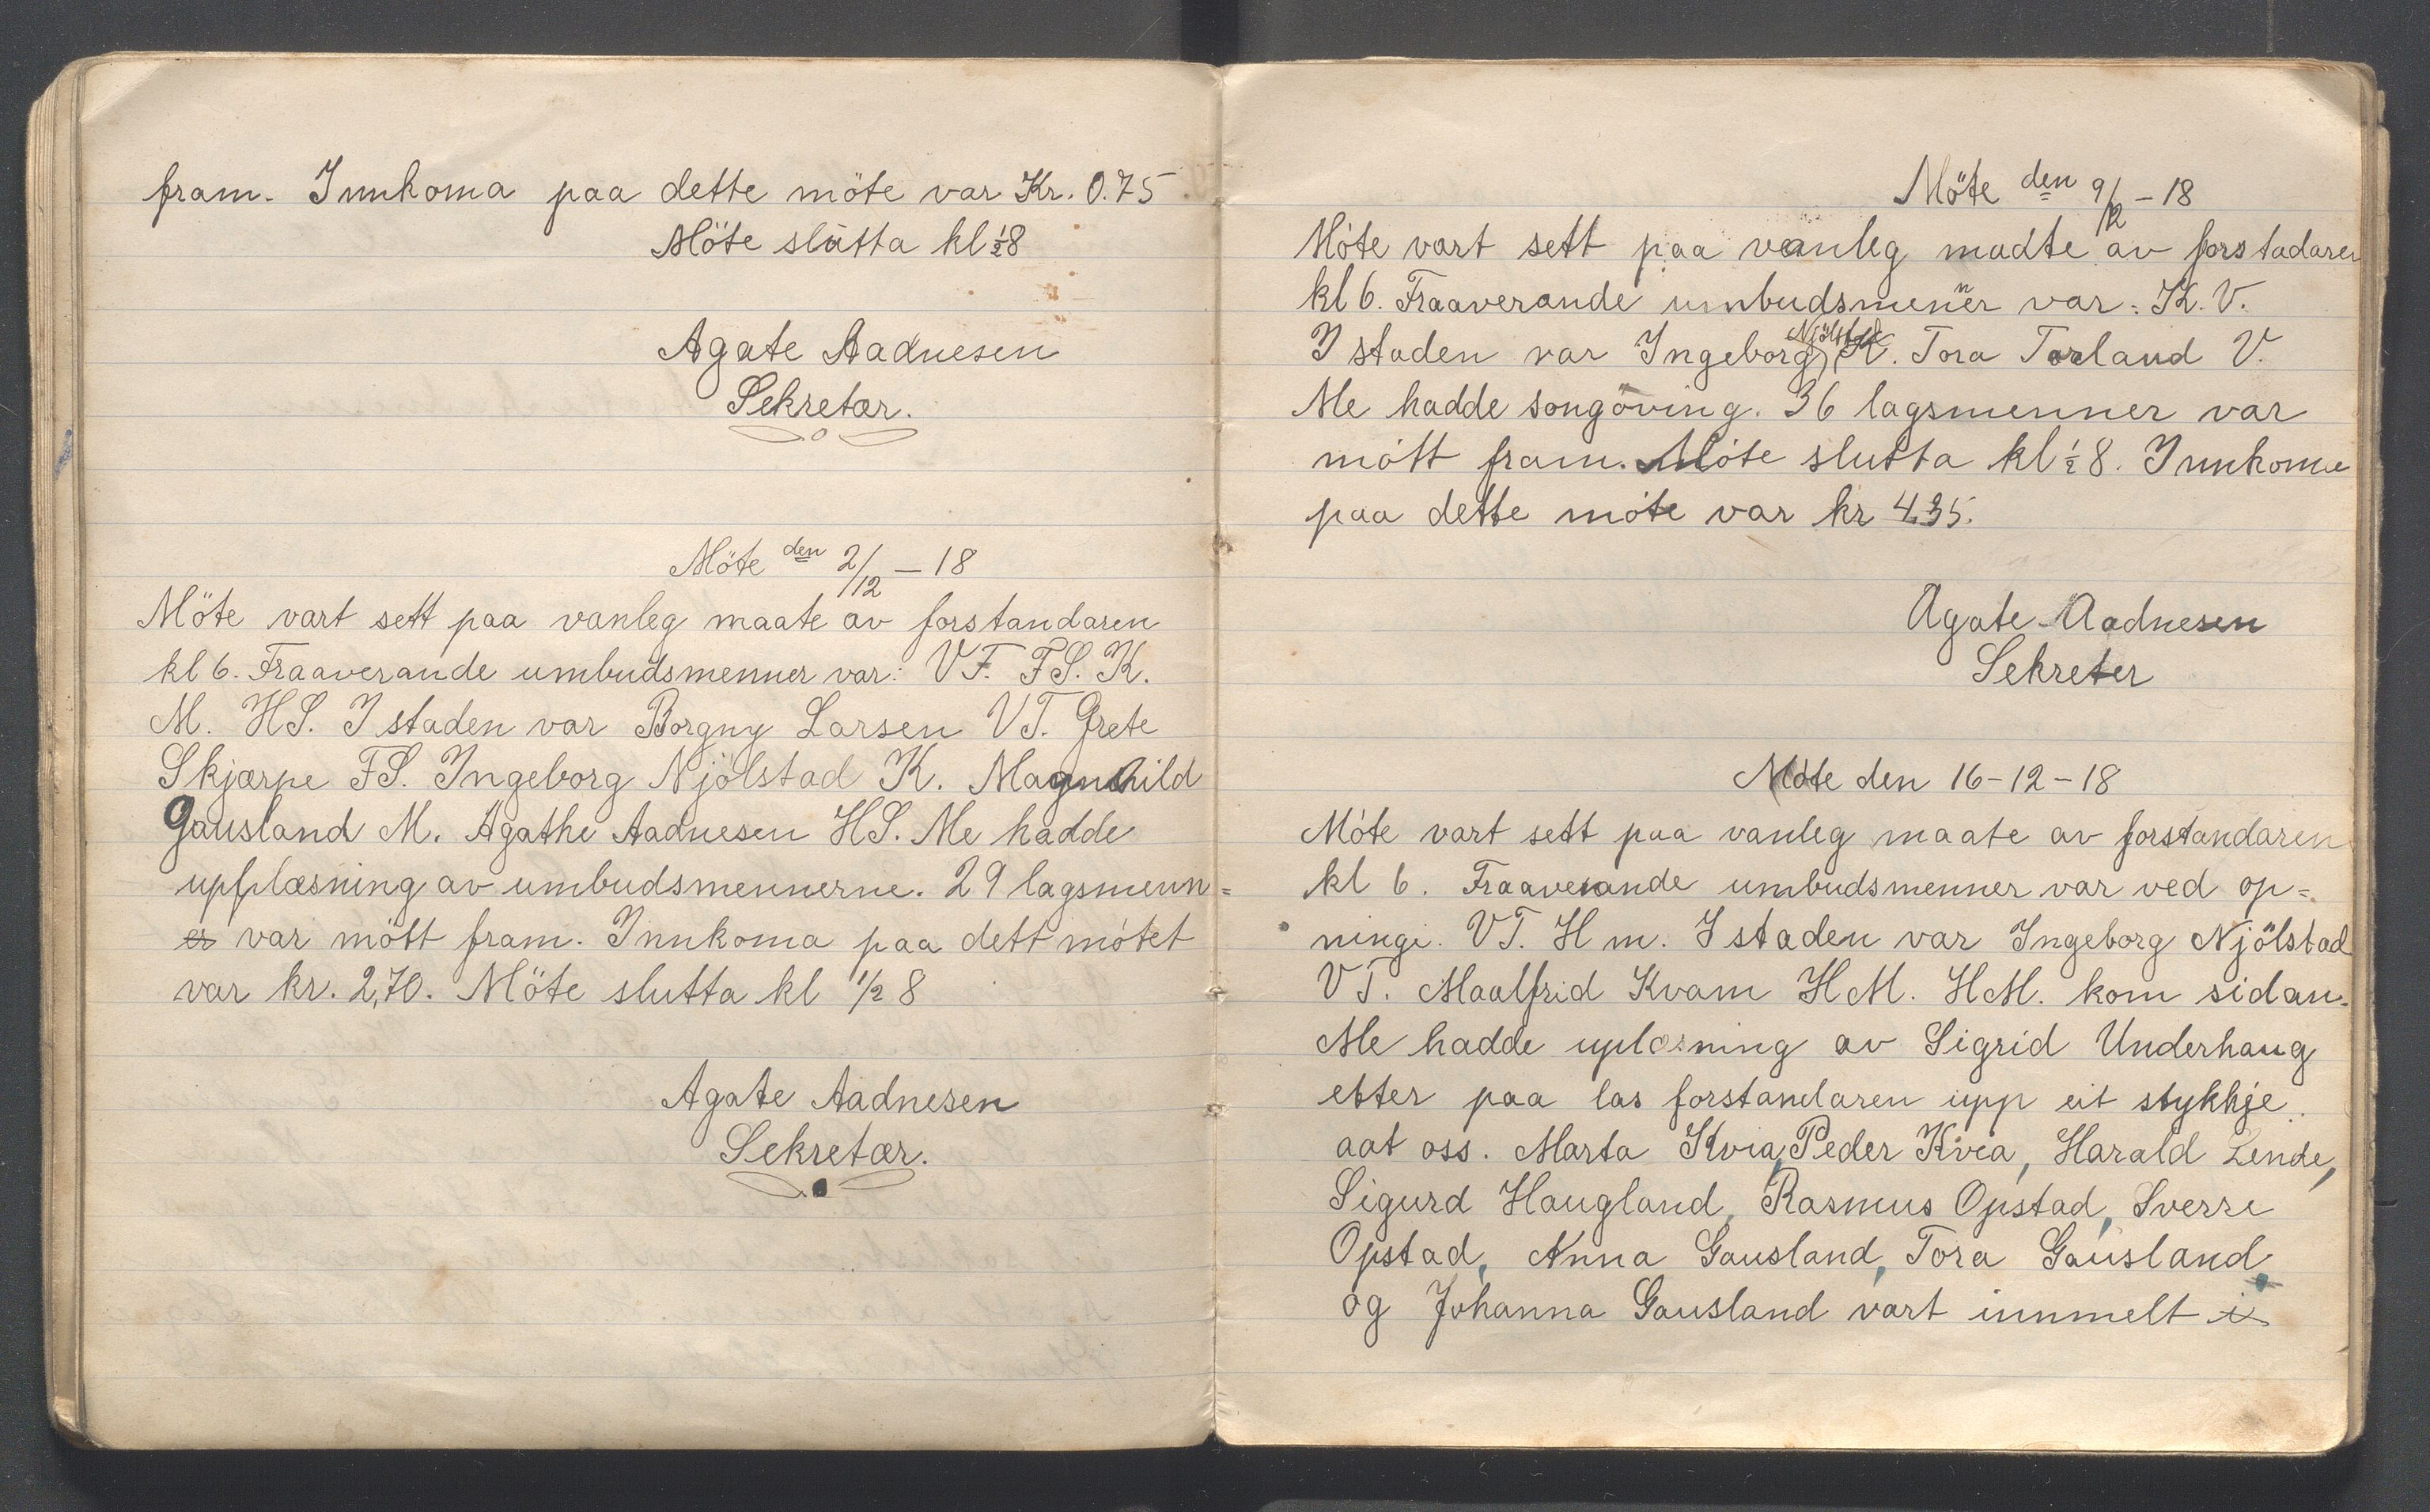 fram. Innkoma paa dette möte var Kr. 0.75
Möte slutta kl ½8
Agate Aadnesen
Sekretær.
Möte den 2/12 – 18
Möte vart sett paa vanleg maate av forstandaren
kl 6. Fraaverande umbudsmenner var: V F. F S. K.
M. H S. I staden var Borgny Larsen V T. Grete
Skjærpe F S. Ingeborg Njölstad K. Magnhild
Gausland M. Agathe Aadnesen H S. Me hadde
upplæsning av umbudsmennerne. 29 lagsmenn=
er var mött fram. Innkoma paa dett mötet
var kr. 2,70. Möte slutta kl 1/2 8
Agate Aadnesen
Sekretær.
Möte den 9/12 – 18
Möte vart sett paa vanleg madte av forstadaren
kl 6. Fraaverande umbudsmenner var: K. V.
I staden var Ingeborg Njölstad K. Tora Torland V.
Me hadde songöving. 36 lagsmenner var
mött fram. Möte slutta kl ½ 8. Innkoma
paa dette möte var kr 4,35.
Agate Aadnesen
Sekreter
Möte den 16-12-18
Möte vart sett paa vanleg maate av forstandaren
kl 6. Fraaverande umbudsmenner var ved op=
ningi. V T. H m. I staden var Ingeborg Njölstad
V T. Maalfrid Kvam H M. H M. kom sidan.
Me hadde uplæsning av Sigrid Underhaug
etter paa las forstandaren upp eit stykkje
aat oss. Marta Kvia, Peder Kvia, Harald Lende,
Sigurd Haugland, Rasmus Opstad, Sverre
Opstad, Anna Gausland, Tora Gausland
og Johanna Gausland vart innmelt i